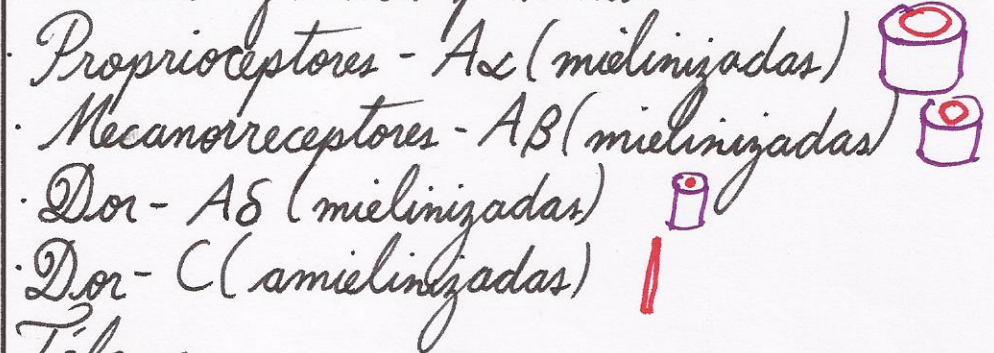 · Proprioceptores - Aα (mielinizadas)
· Mecanorreceptores - Aβ (mielinizadas)
· Dor - Aδ (mielinizadas)
· Dor - C (amielinizadas)